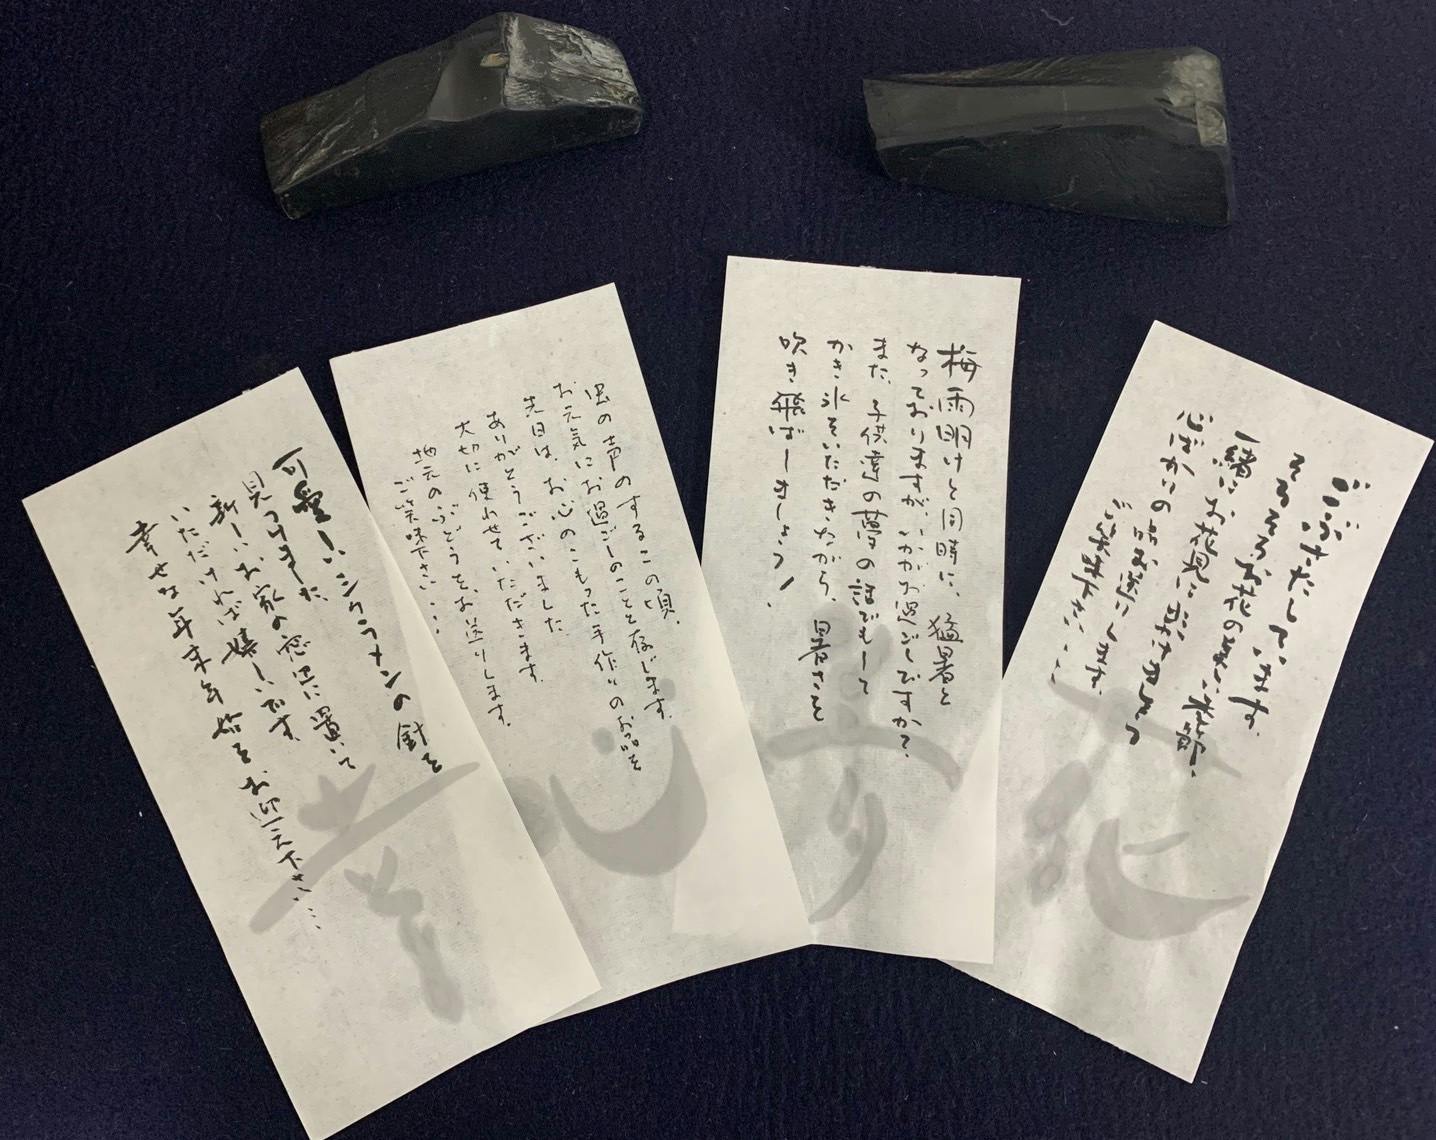 ごぶさたしています。
そろそろお花の美しい季節、
一緒にお花見に出かけましょう
心ばかりの品お送りします。
ご笑味下さい…
梅雨明けと同時に、猛暑と
なっておりますが、いかがお過ごしですか?
また、子供達の夢の話でもして
かき氷をいただきながら、暑さを
吹き飛ばしましょう!
虫の声のするこの頃、
お元気にお過ごしのことと存じます。
先日は、お心のこもった手作りのお品を
ありがとうございました
大切に使わせていただきます。
地元のぶどうを、お送りします。
ご笑味下さい…
可愛しいシクラメンの針を
見つけました。
新しいお家の窓辺に置いて
いただければ嬉しいです。
幸せな年末年始をお迎え下さい…
花
夢
心